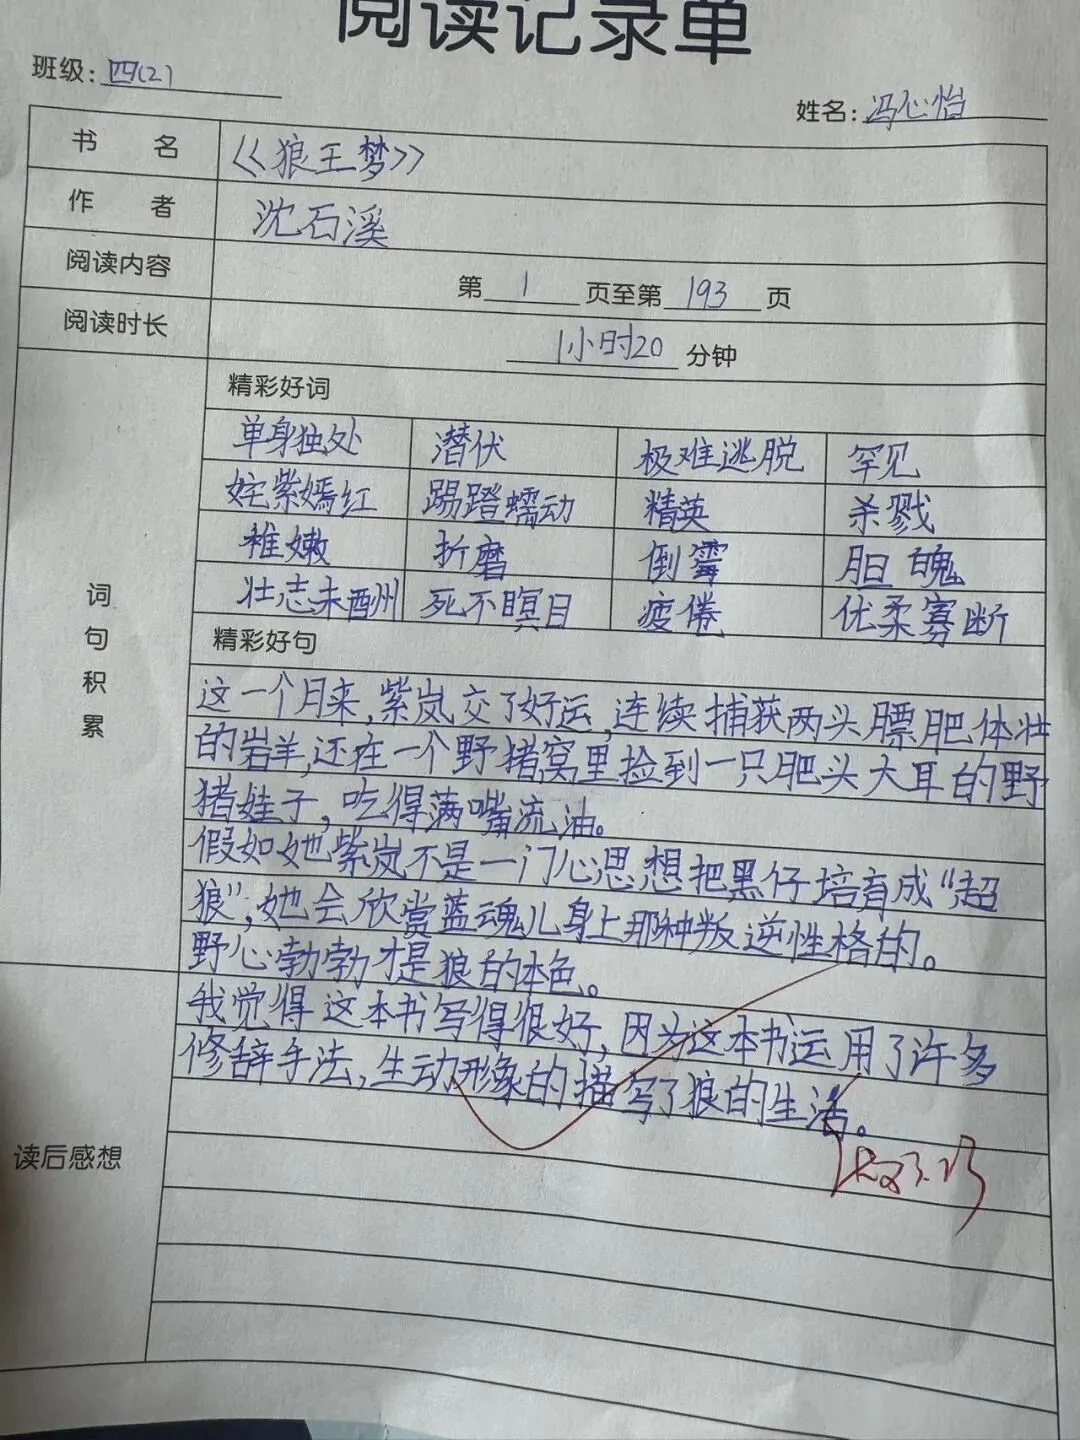 阅读记录单
班级：四(2)
姓名：冯心怡
书 名 《狼王梦》
作 者 沈石溪
阅读内容 第 1 页至第 193 页
阅读时长 1小时20 分钟
词句积累
精彩好词
单身独处 潜伏 极难逃脱 罕见
姹紫嫣红 踢蹬蠕动 精英 杀戮
稚嫩 折磨 倒霉 胆魄
壮志未酬 死不瞑目 疲倦 优柔寡断
精彩好句
这一个月来,紫岚交了好运,连续捕获两头膘肥体壮
的岩羊,还在一个野猪窝里捡到一只肥头大耳的野
猪娃子，吃得满嘴流油。
假如她紫岚不是一门心思想把黑仔培育成“超
狼”,她会欣赏蓝魂儿身上那种叛逆性格的。
野心勃勃才是狼的本色。
读后感想
我觉得这本书写得很好,因为这本书运用了许多
修辞手法,生动形象的描写了狼的生活。